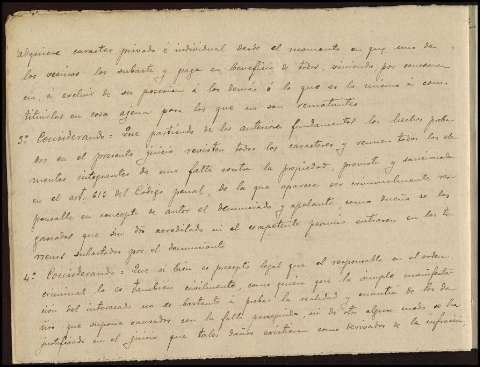 adquiere caracter privado é individual desde el momento en que uno de
los vecinos los subasta y paga en beneficio de todos, viniendo por consecuen
cia, á excluir de su posesión á los demás ó lo que es lo mismo á cons
tituirlos en cosa agena para los que no son rematantes
3º Considerando = Que partiendo de los anteriores fundamentos los hechos proba
dos en el presente juicio revisten todos los caracteres y reunen todos los ele
mentos integrantes de una falta contra la propiedad, prevista y sancionada
en el art. 613 del Código penal, de la que aparece ser criminalmente res
ponsable en concepto de autor el denunciado y apelante, como dueño de los
ganados que sin dio acreditado ni el competente permiso entraron en los te
rrenos subastados por el denunciante
4º Considerando = Que si bien es precepto legal que el responsable en el orden
criminal lo es tambien civilmente, como quiera que la simple manifesta
ción del interesado no es bastante á probar la realidad y cuantia de los da
ños que supone causados con la falta perseguida, ni de otro algun modo se ha
justificado en el juicio que tales daños existieran como derivados de la infracción,